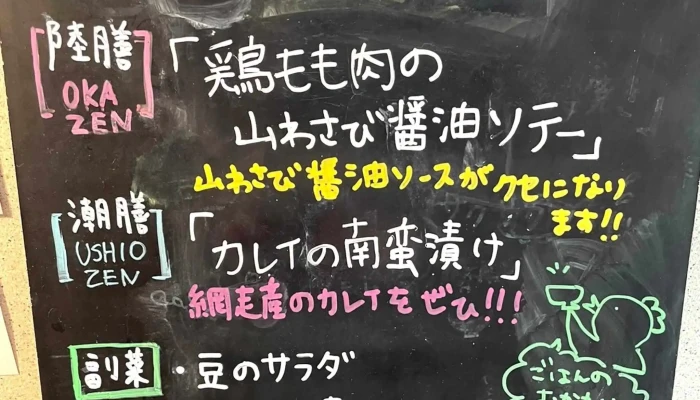 陸膳
OKA
ZEN
「鶏もも肉の
山わさび醤油ソテー」
山わさび醤油ソースがクセになり
ます!!
潮膳
USHIO
ZEN
「カレイの南蛮漬け」
網走産のカレイをぜひ!!!
副菜
・豆のサラダ
ごはんの